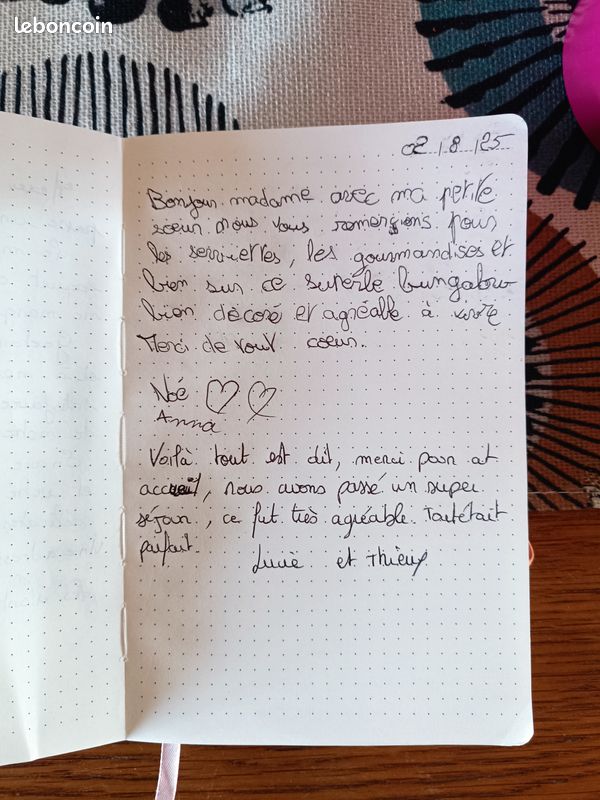 leboncoin
02/8/25
Bonjour madame avec ma petite
sœur nous vous remersions pour
les serviettes, les gourmandises et
bien sur ce superbe bungalow
bien décoré et agréable à vivre
Merci de tout coeur.
Noé ♡ ♡
Anna
Voilà tout est dit, merci pour cet
accueil, nous avons passé un super
séjour, ce fut très agréable. Tout était
parfait.
et Thierry